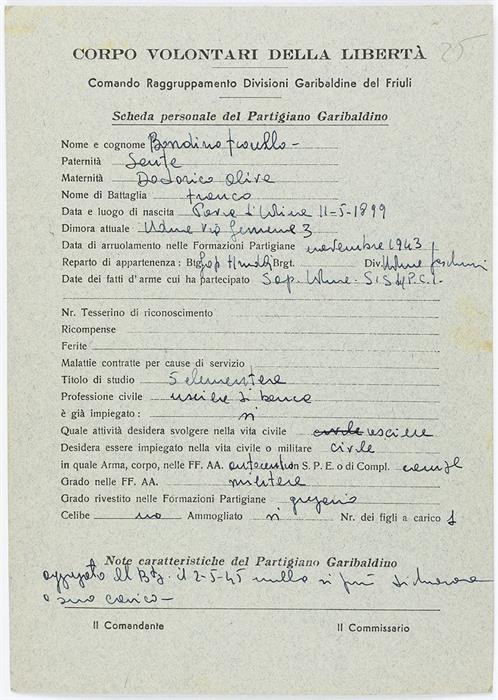 25
CORPO VOLONTARI DELLA LIBERTÀ
Comando Raggruppamento Divisioni Garibaldine del Friuli
Scheda personale del Partigiano Garibaldino
Nome e cognome Bondino
Paternità Sante
Maternità Dolorico Olive
Nome di Battaglia franco
Data e luogo di nascita 11-5-1899
Dimora attuale Udine via Gemona 3
Data di arruolamento nelle Formazioni Partigiane novembre 1943
Reparto di appartenenza : Btg. Gap Brgt. Div. Udine
Date dei fatti d'arme cui ha partecipato Gap. Udine. P.C.I.
Nr. Tesserino di riconoscimento
Ricompense
Ferite
Malattie contratte per cause di servizio
Titolo di studio 5 elementere
Professione civile usciere di banca
è già impiegato : si
Quale attività desidera svolgere nella vita civile civile usciere
Desidera essere impiegato nella vita civile o militare civile
in quale Arma, corpo, nelle FF. AA. in S. P. E. o di Compl.
Grado nelle FF. AA. militere
Grado rivestito nelle Formazioni Partigiane gregario
Celibe no Ammogliato si Nr. dei figli a carico 1
Note caratteristiche del Partigiano Garibaldino
aggregato al Btg. il 2-5-45 nulla si può
a suo carico -
Il Comandante Il Commissario